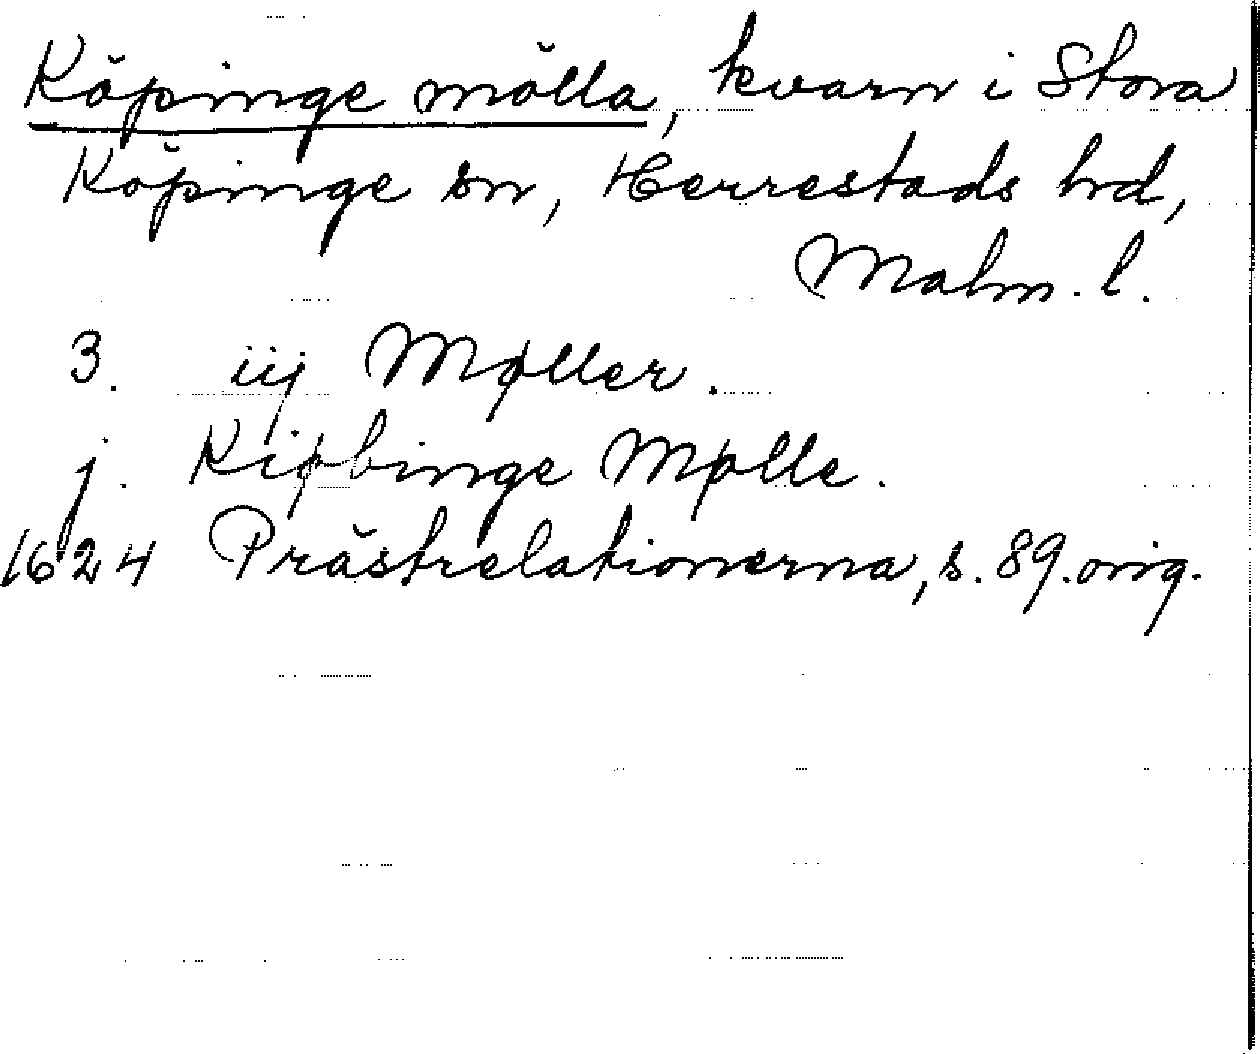 Köpinge mölla, kvarn i Stora
Köpinge sn, Herrestads hrd,
Malm. l.
3. iij Møller.
j. Kiøbinge Mølle.
1624 Prästrelationerna, s. 89. orig.